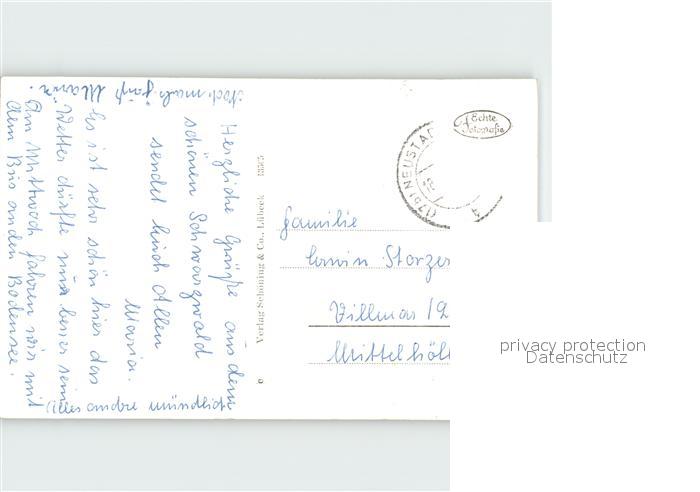 Herzliche Grüße aus dem
schönen Schwarzwald
sendet Euch Allen
Maria.
Es ist sehr schön hier das
Wetter dürfte nur besser sein
Am Mittwoch fahren wir mit
dem Bus an den Bodensee.
Alles andre mündlich
Nochmals Gruß Maria.
Verlag Schöning & Co., Lübeck
Echte
Fotografie
(17b) NEUSTAD
Familie
Erwin Storzer
Villmar
Mittelhöl
privacy protection
Datenschutz